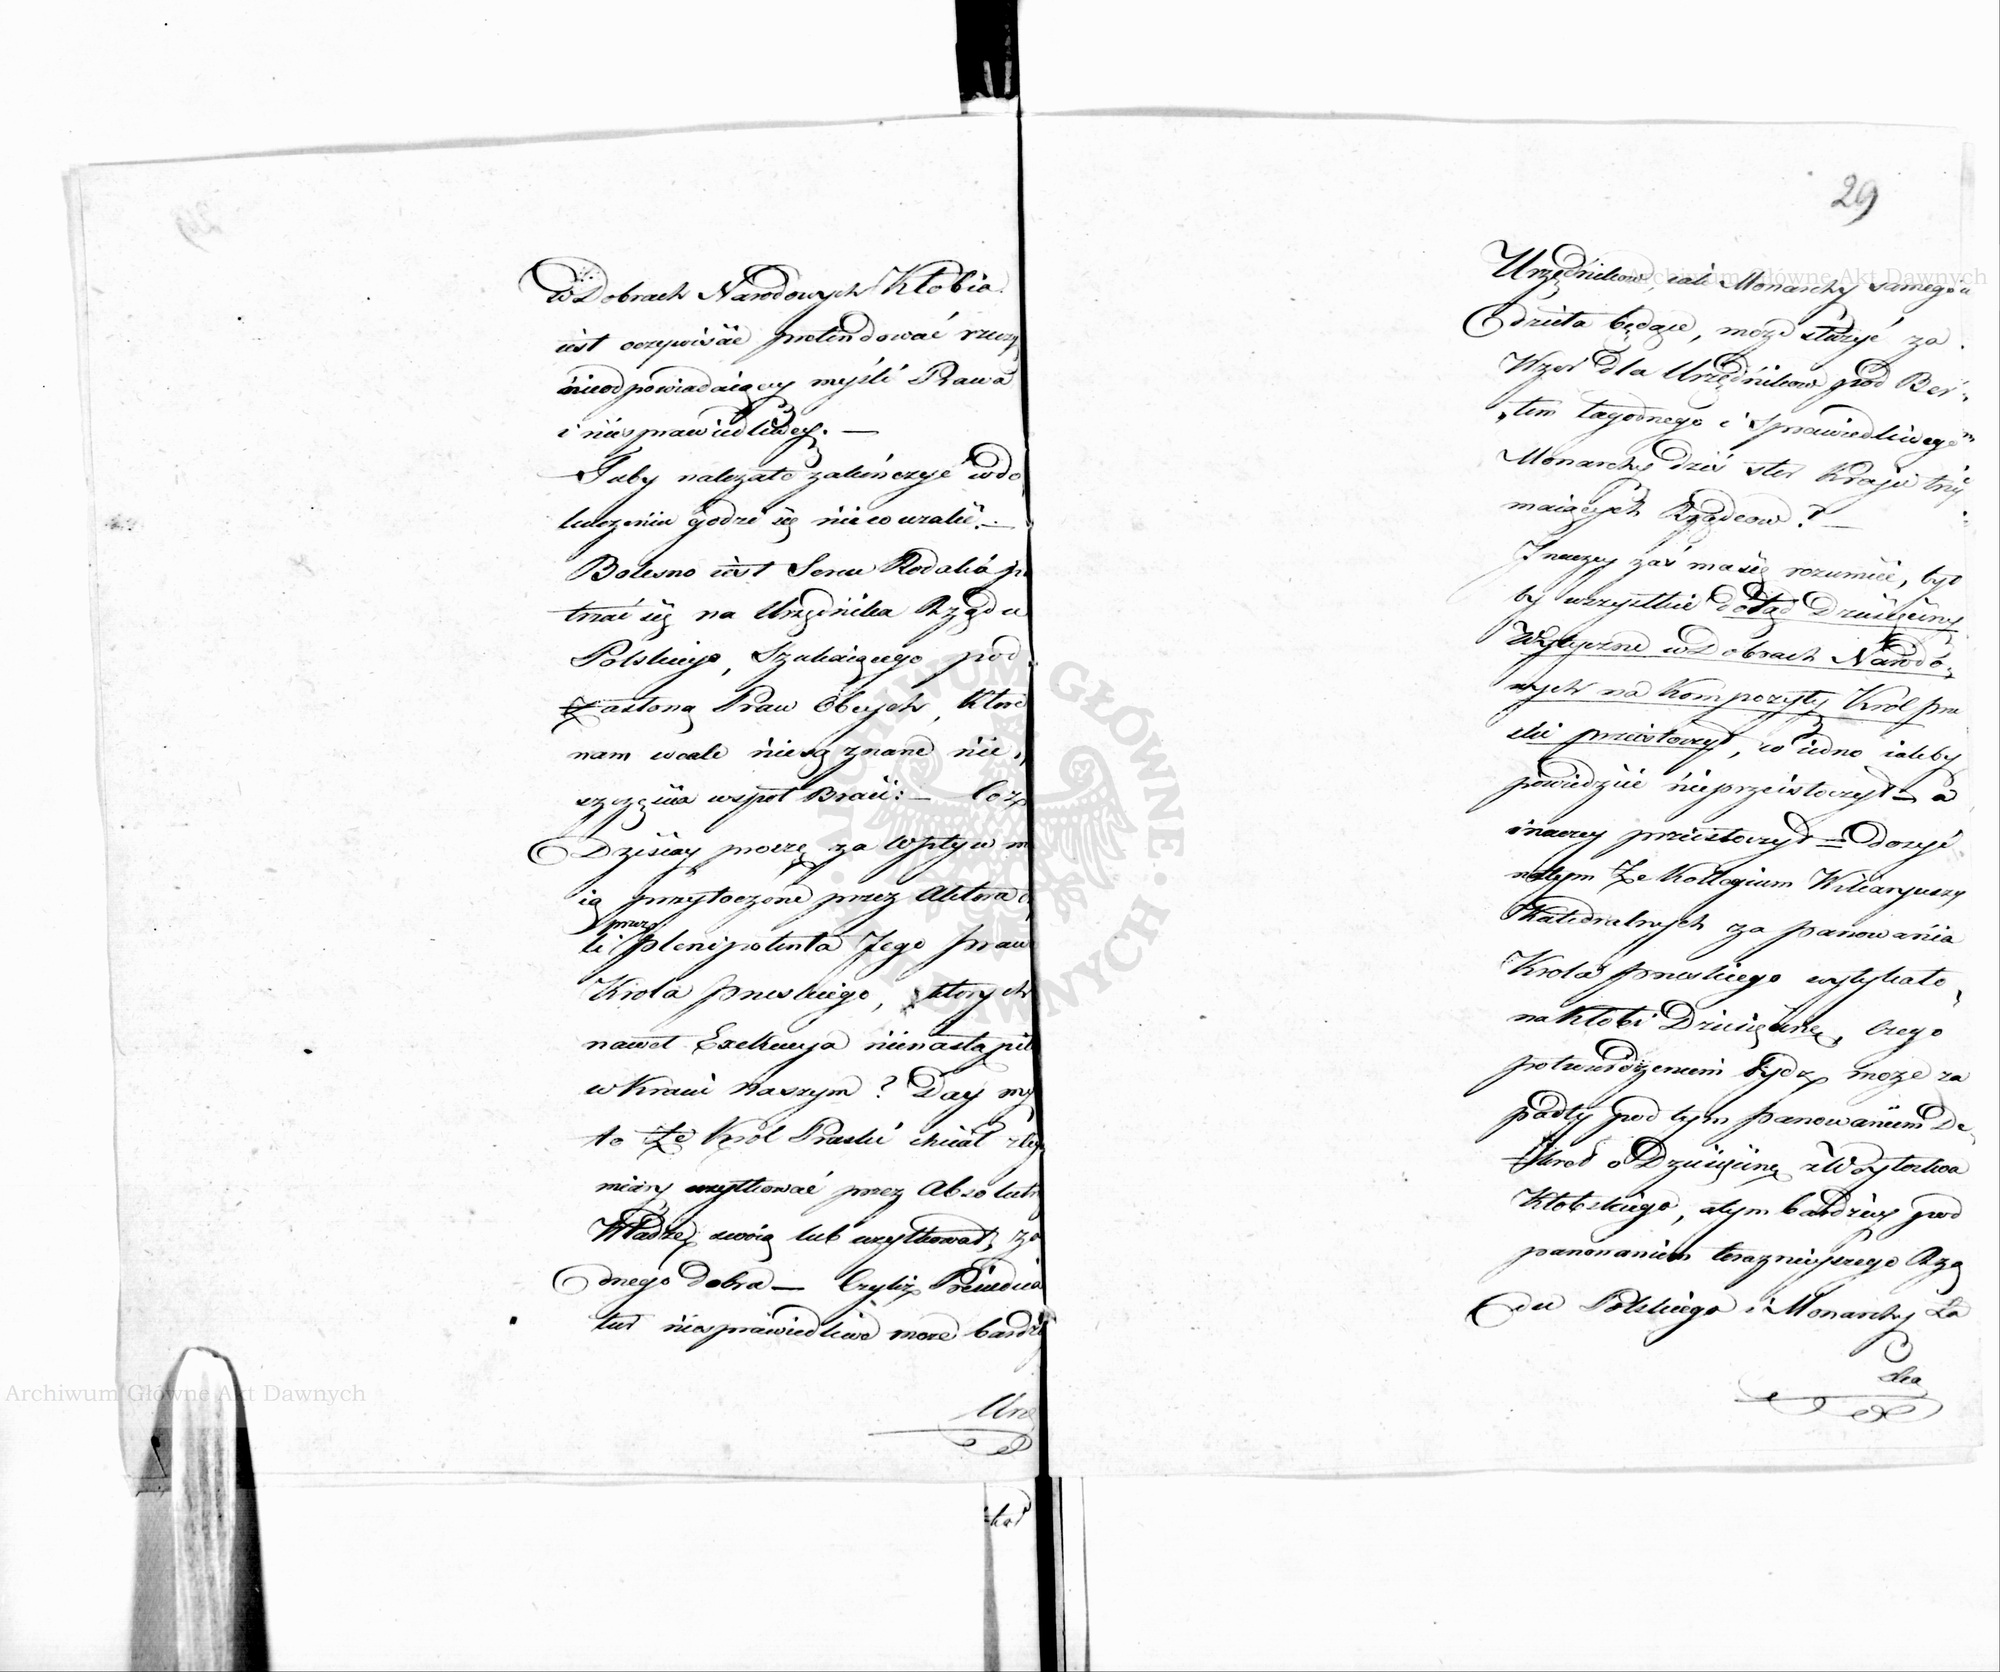 w Dobrach Narodowych Kłobia
iest oczywiście pretendować rzeczy
nieodpowiadaiący myśli Prawa
i niesprawiedliwey. —
Tuby należało zakończyć wdo
luczeniu godzi się nieco uzalić. —
Bolesno iest Sercu Rodaka pa
trzać się na Urzędnika Rządu
Polskiego, Szukaiącego pod
zasłoną Praw Obcych, które
nam wcale niesą znane nie
szczęścia wspoł Braci: — Coż
Dzisiay moczę za wpływ m
ią przytoczone przez Aktora
przez
li plenipotenta Jego praw
Krola pruskiego, których
nawet Exekucya nienastąpiła
w Kraiu naszym? Day my
to że Król Pruski chciał
miary uzytkować przez Absolutn
Władzę swoią lub uzytkował, z
dnego dobra — Czyliż
niesprawiedliwe może bardzi
Urzę
29
Urzędnikow, iak Monarchy samego
dzieła będące, może służyć za
Wzór dla Urzędników pod Ber
łem łagodnego i Sprawiedliwego
Monarchy dziś ster Kraju trzy
maiących Rządcow? —
Inaczey zaś ma się rozumieć, był
by wszystkie dotąd Dziesięciny
Wytyczne w Dobrach Narodo
wych na Kompozyty Król pru
ski przeistoczył, to iedno iakby
powiedzieć nieprzeistoczył — a
inaczey przeistoczył — Dosyć
natym że Kollegium Wikaryuszy
Katedralnych za panowania
Krola pruskiego wytykało
na Kłobi Dziesięcinę, czego
potwierdzeniem bydź może za
padły pod tym panowaniem De
kret o Dziesięcinę z Woytostwa
Kłobskiego, a tym bardziey pod
panowaniem teraznieyszego Rzą
du Polskiego i Monarchy Ła
ska
Archiwum Główne Akt Dawnych
Archiwum Główne Akt Dawnych
ARCHIWUM GŁÓWNE AKT DAWNYCH